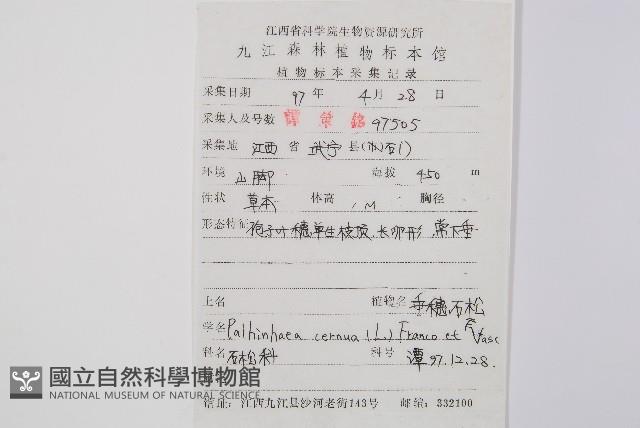 江西省科学院生物资源研究所
九江森林植物标本馆
植物标本采集记录
采集日期 97 年 4 月 28 日
采集人及号数 97505
采集地 江西 省 武宁 县(
环境 山脚 海拔 450 m
性状 草本 体高 . M 胸径
形态特征 孢子叶穗单生枝顶,长卵形,常下垂
土名 植物名 垂穗石松
学名 Palhinhaea cernua (L.) Franco et Vasc
科名 石松科 科号 谭 97.12.28.
國立自然科學博物館
NATIONAL MUSEUM OF NATURAL SCIENCE
馆址:江西九江县沙河老街143号 邮编:332100